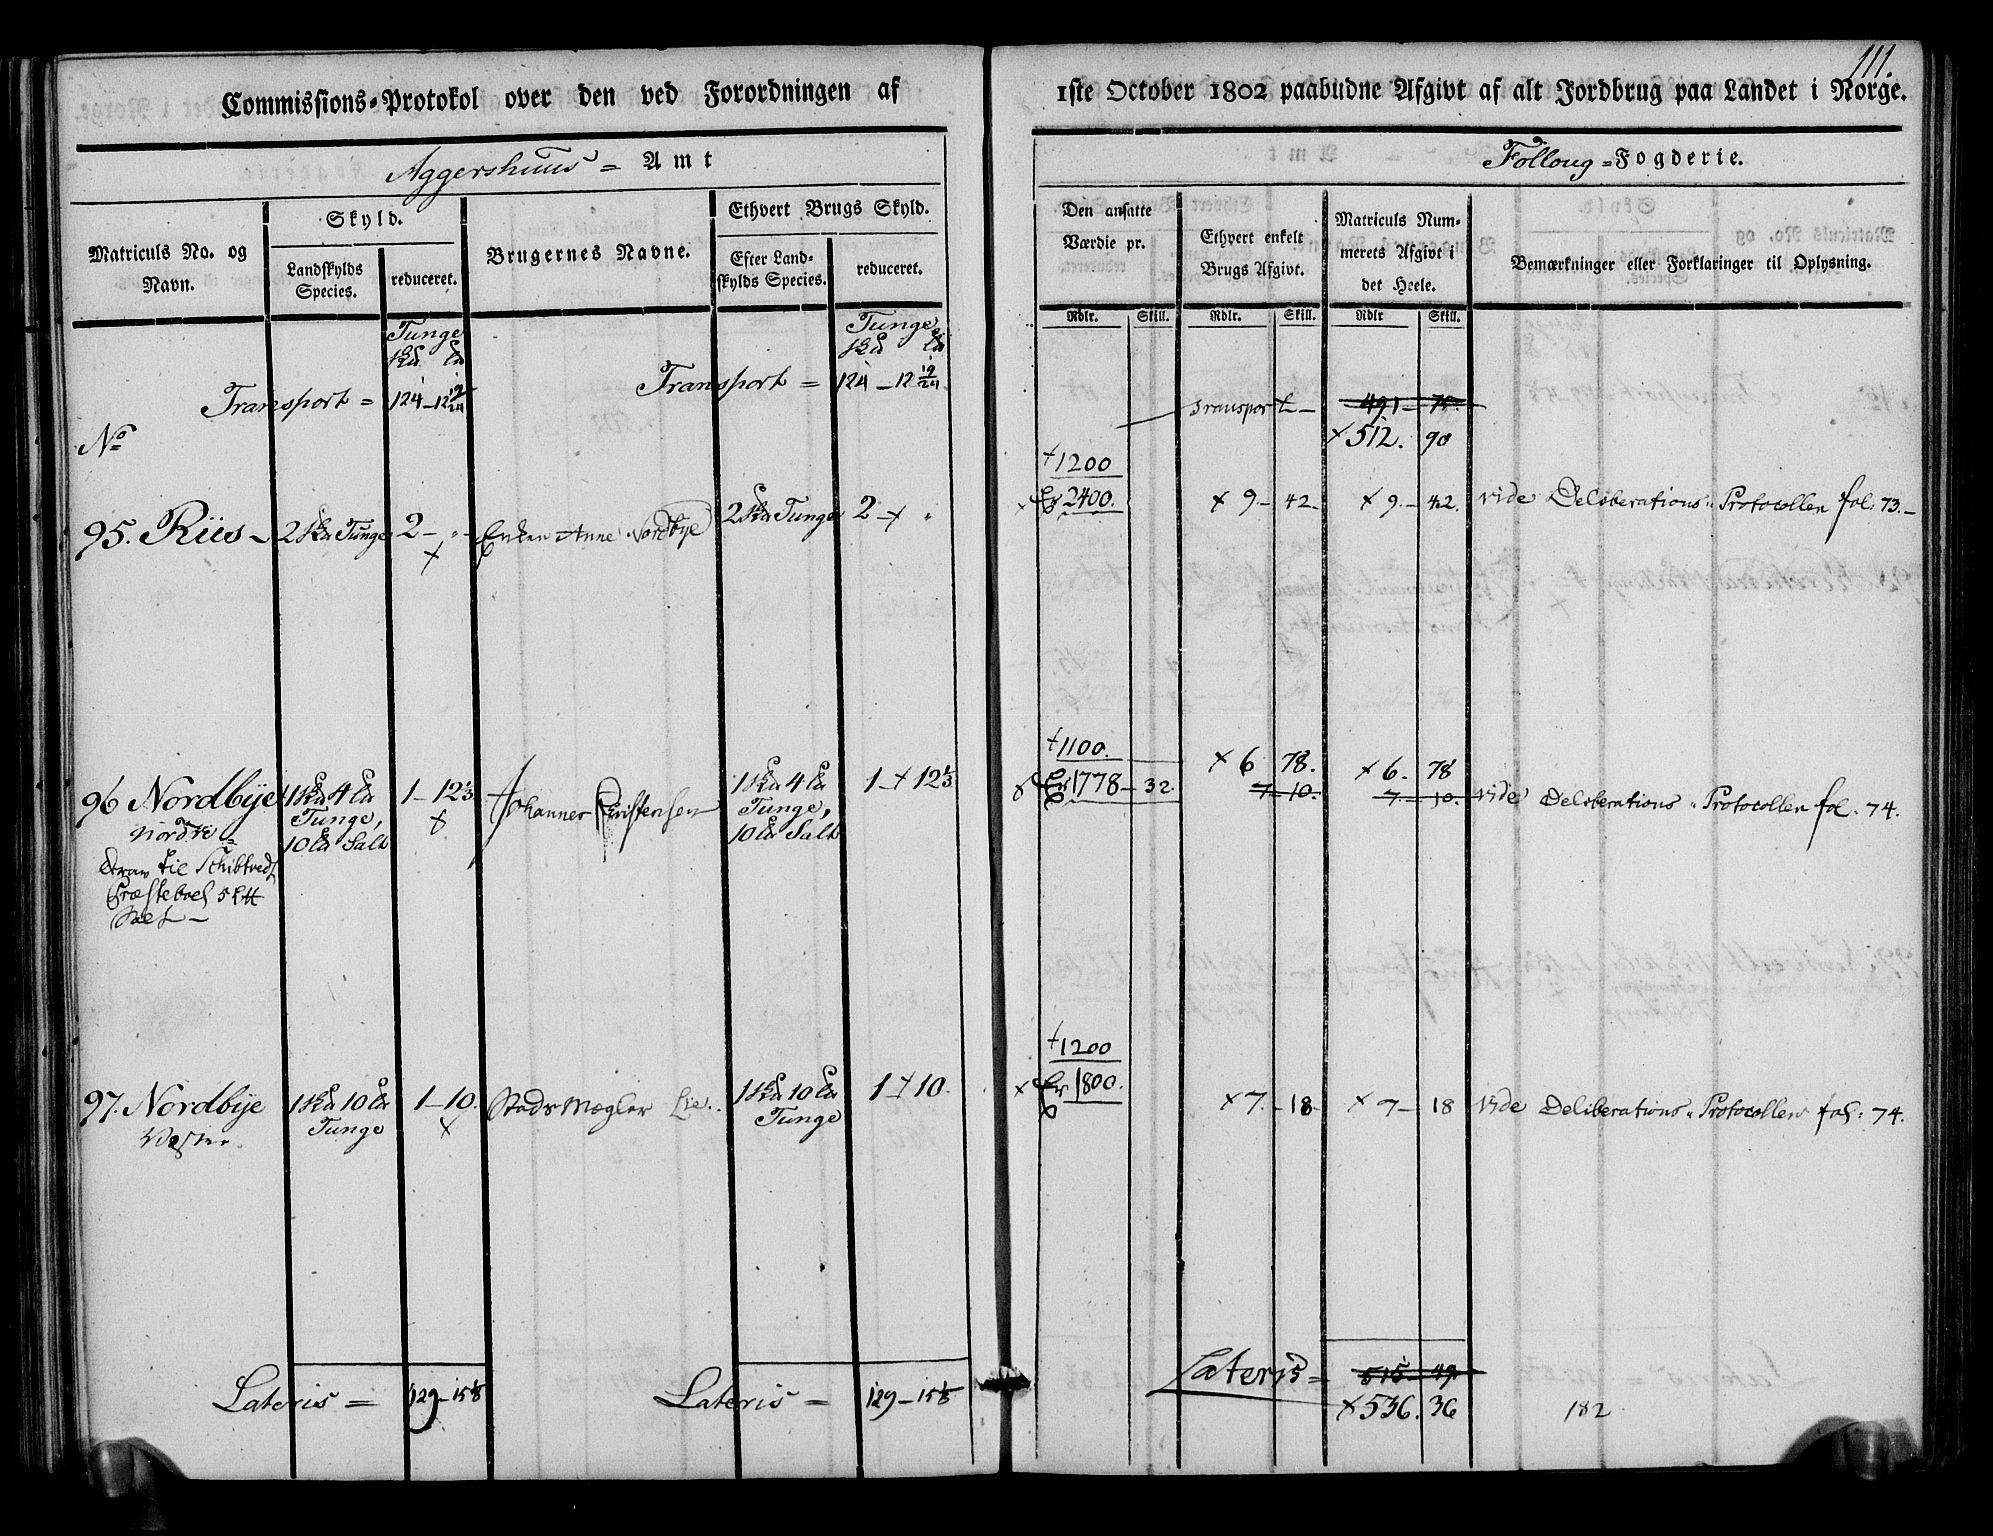 111.
Commissions-Protokol over den ved Forordningen af 1ste October 1802 paabudne Afgivt af alt Jordbrug paa Landet i Norge.
Aggershuus = Amt
Folloug = Fogderie.
Matriculs No. og Navn.
Skyld.
Landskylds Species.
reduceret.
Brugernes Navne.
Ethvert Brugs Skyld.
Efter Landskylds Species.
reduceret.
Den ansatte Værdie pr.
Ethvert enkelt Brugs Afgivt.
Matriculs Nummerets Afgivt i det Heele.
Bemærkninger eller Forklaringer til Oplysning.
Rdlr. Skill. Rdlr. Skill. Rdlr Skill.
Tunge Tunge
Skd Ld Skd Ld
Transport = 124 – 12 19/24 Transport = 124 – 12 19/24 Transport – 491 – 75.
× 512. 90
No
† 1200
95. Riis – 2 Skd Tunge 2 – " – Enken Anne Nordbye 2 Skd Tunge 2 – × " Er 2400. × 9 – 42 – × 9 – 42. vide Deliberations-Protocollen fol: 73. –
† 1100.
96 Nordbye 1 Skd 4 Ld 1 – 12 1/3 Johannes Christensen 1 Skd 4 Ld 1 – × 12 1/3 Er 1778 – 32. × 6 78. × 6. 78
Nordre Tunge, Tunge, 7 – 10. 7 – 10. vide Deliberations-Protocollen fol. 74.
10 Ld Salt 10 Ld Salt
til Schibtved
Præsteboel 5
Salt –
† 1200
97. Nordbye 1 Skd 10 Ld 1 – 10. Stads Mægler Lie. 1 Skd 10 Ld 1 × 10. Er 1800. × 7. – 18 – × 7 – 18 vide Deliberations-Protocollen fol: 74.
Vester. Tunge Tunge
Lateris = 129 – 15 1/8 Lateris = 129 – 15 1/8 Lateris = 515 – 49
× 536. 36
182